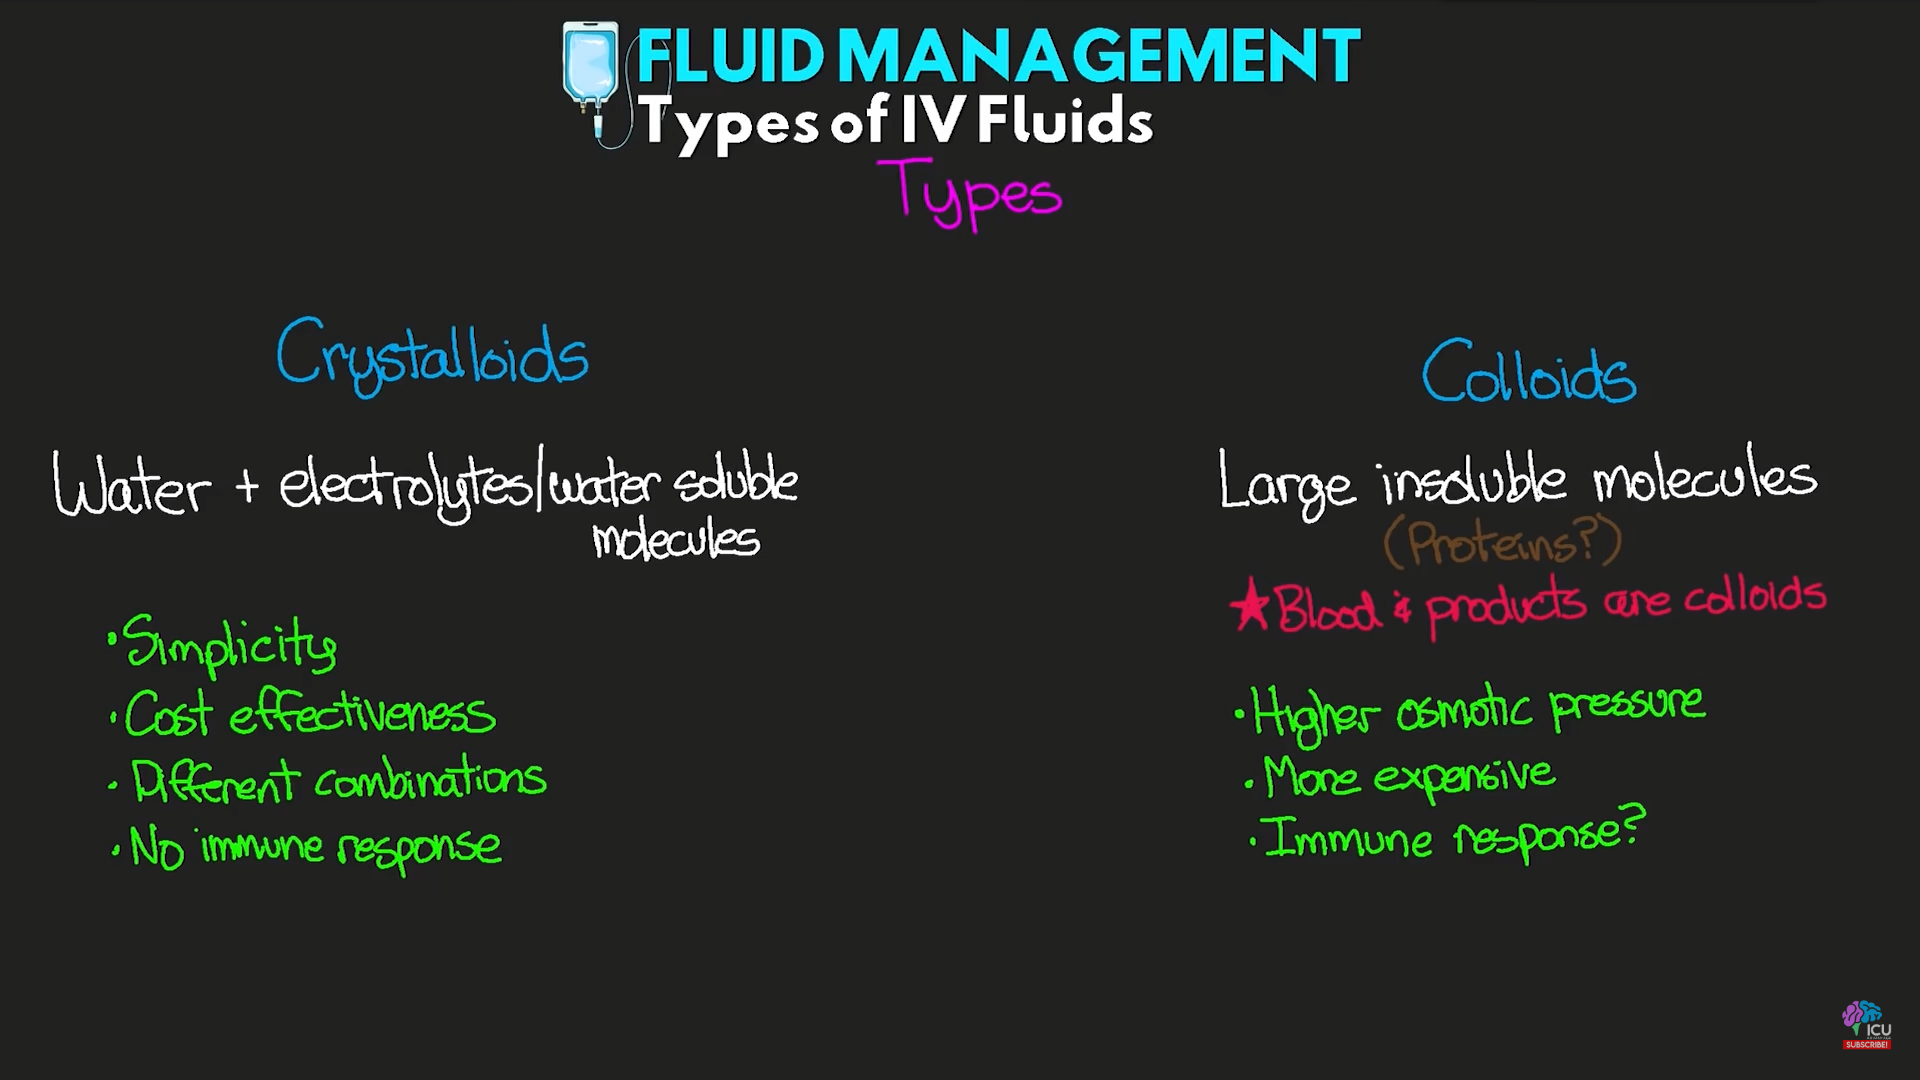 FLUID MANAGEMENT
Types of IV Fluids
Types
Crystalloids
Water + electrolytes/water soluble
molecules
• Simplicity
• Cost effectiveness
• Different combinations
• No immune response
Colloids
Large insoluble molecules
(Proteins?)
★ Blood & products are colloids
• Higher osmotic pressure
• More expensive
• Immune response?
ICU
SUBSCRIBE!